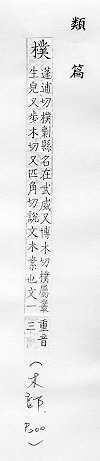 類篇
樸
蓬逋切樸劋縣名在武威又博木切樸屬叢
生皃又步木切又匹角切說文木素也文一
重音
三
(木部. P200)